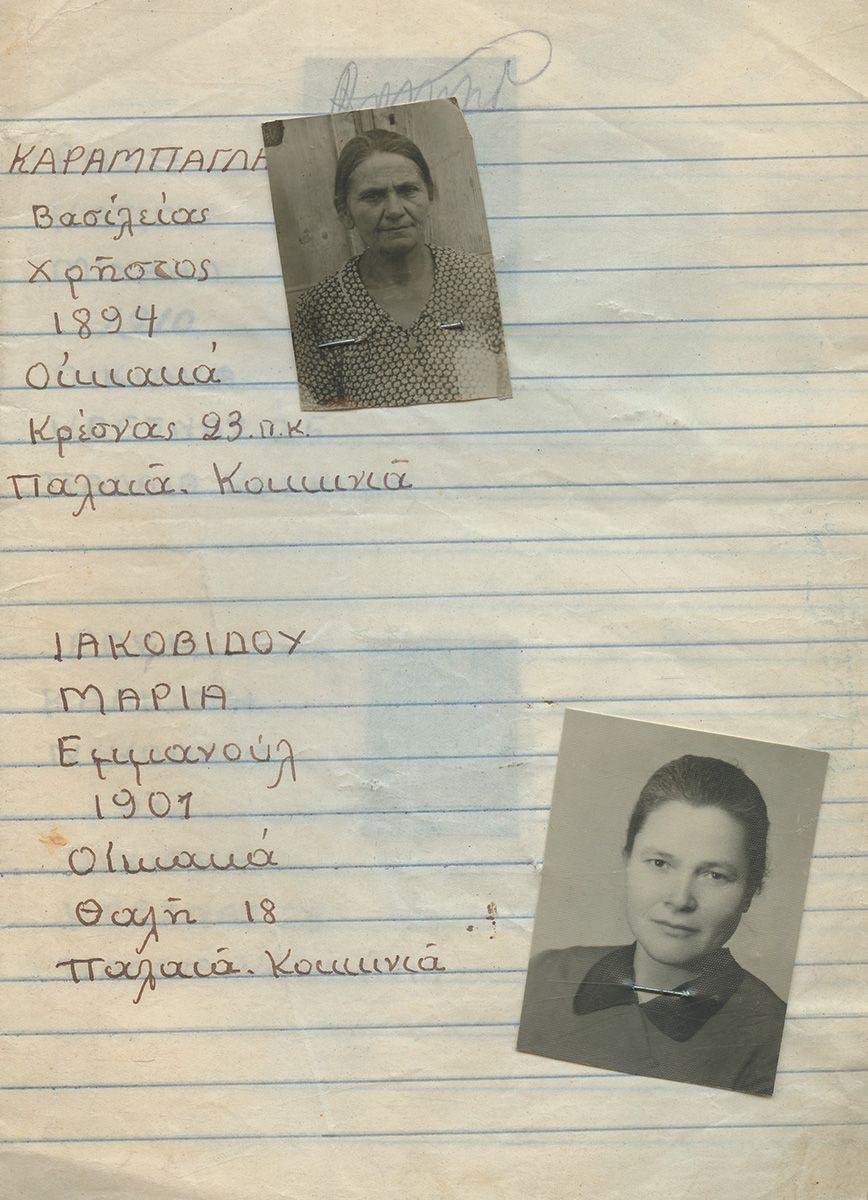 ΚΑΡΑΜΠΑΓΛΑ
Βασίλείας
Χρῆστος
1894
Οἰκιακά
Κρέσνας 23.π.κ.
Παλαιᾶ. Κοκκινιᾶ
ΙΑΚΟΒΙΔΟΥ
ΜΑΡΙΑ
Εμμανούλ
1901
Οἰκιακά
Θαλῆ 18
Παλαιά. Κοκκινιά